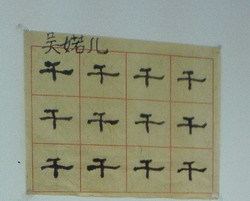 吴婼儿
千千千千
千千千千
千千千千